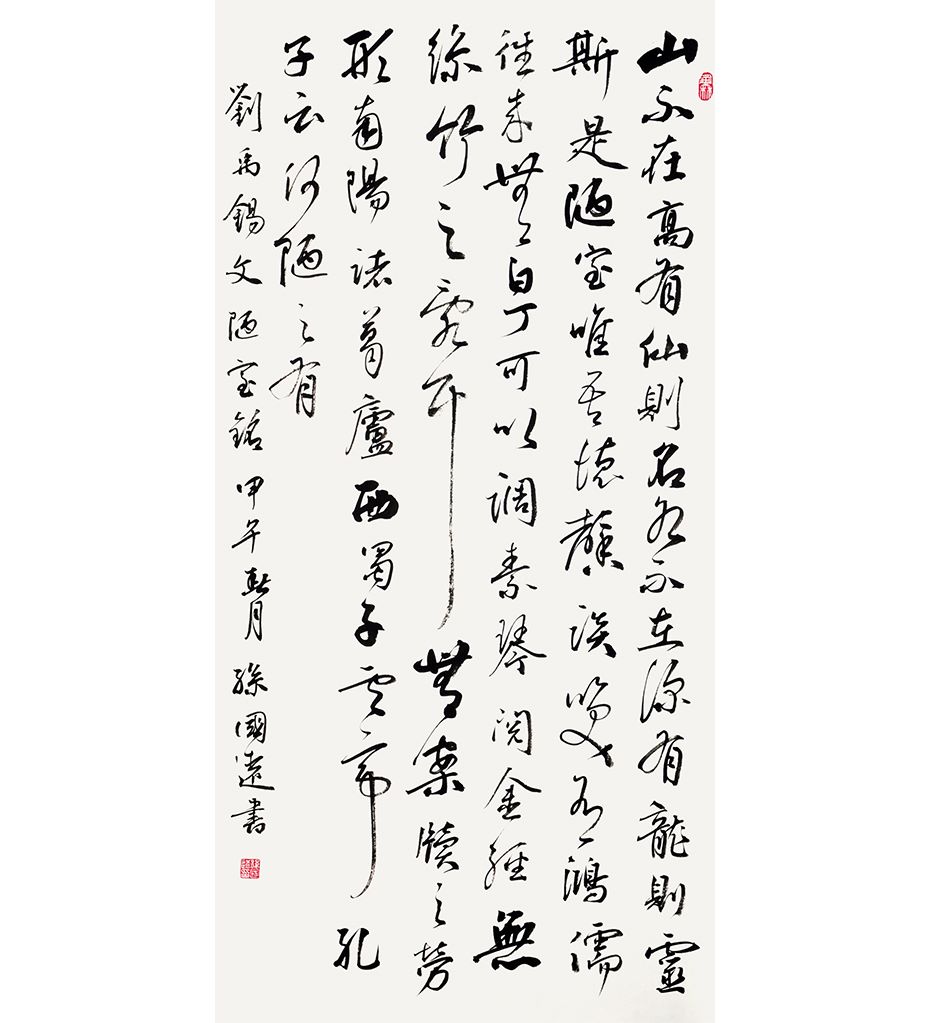 山不在高有仙則名水不在深有龍則靈
斯是陋室唯吾德馨談咲有鴻儒
往來無白丁可以調素琴閱金經無
絲竹之亂耳無案牘之勞
形南陽諸葛廬西蜀子雲亭孔
子云何陋之有
劉禹錫文陋室銘甲午春月孫國遠書